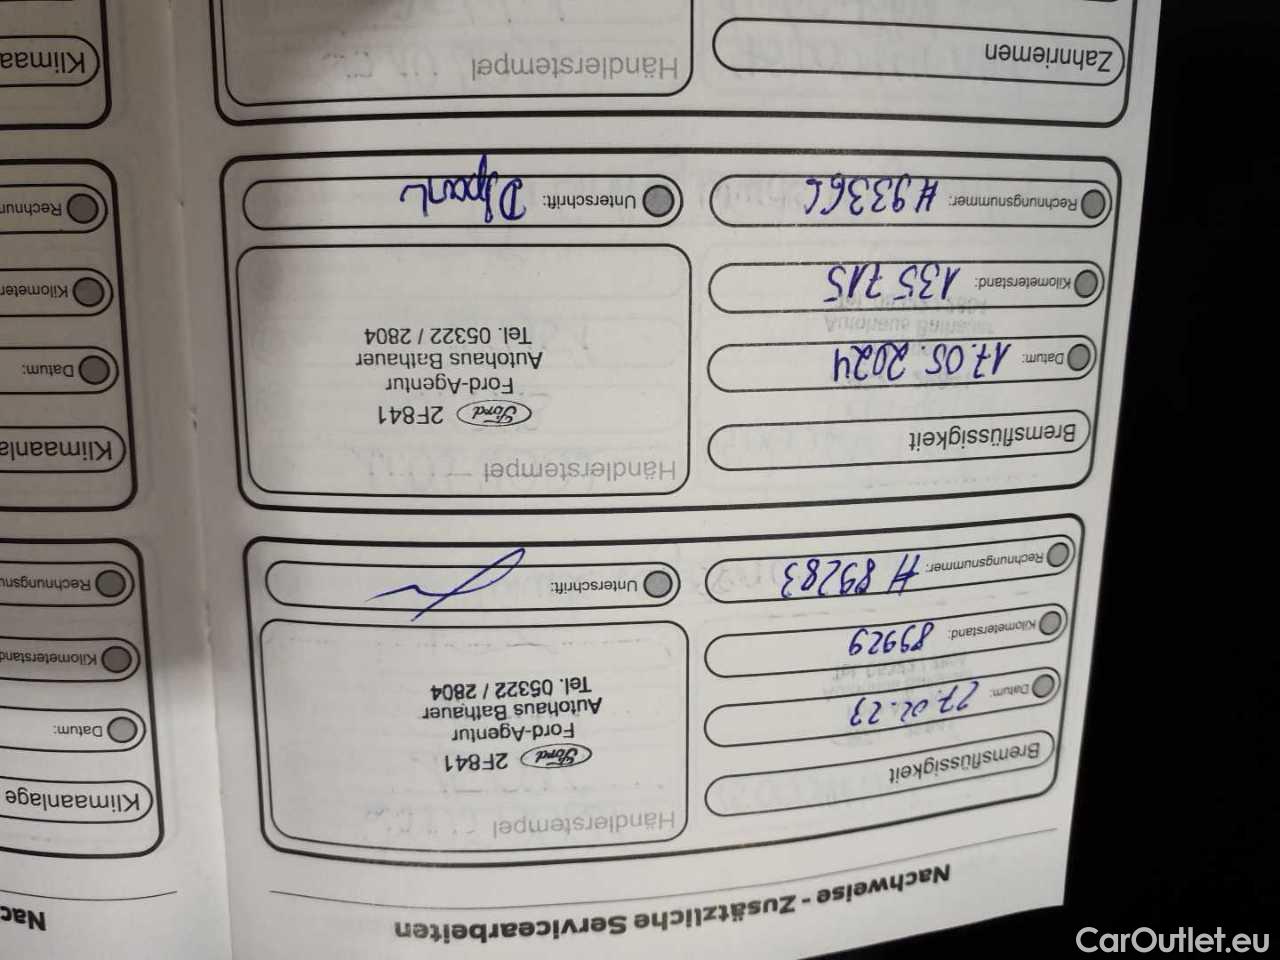 Nachweise - Zusätzliche Servicearbeiten
Bremsflüssigkeit
Datum: 27.02.23
Kilometerstand: 89929
Rechnungsnummer: # 89283
Händlerstempel
Ford 2F841
Ford-Agentur
Autohaus Bathauer
Tel. 05322 / 2804
Unterschrift:
Bremsflüssigkeit
Datum: 17.05.2024
Kilometerstand: 135 715
Rechnungsnummer: # 93366
Händlerstempel
Ford 2F841
Ford-Agentur
Autohaus Bathauer
Tel. 05322 / 2804
Unterschrift:
Zahnriemen
Händlerstempel
Nac
Klimaanlage
Datum:
Kilometerstand
Rechnungsnu
Klimaanla
Datum:
Kilometer
Rechnun
Klimaa
CarOutlet.eu